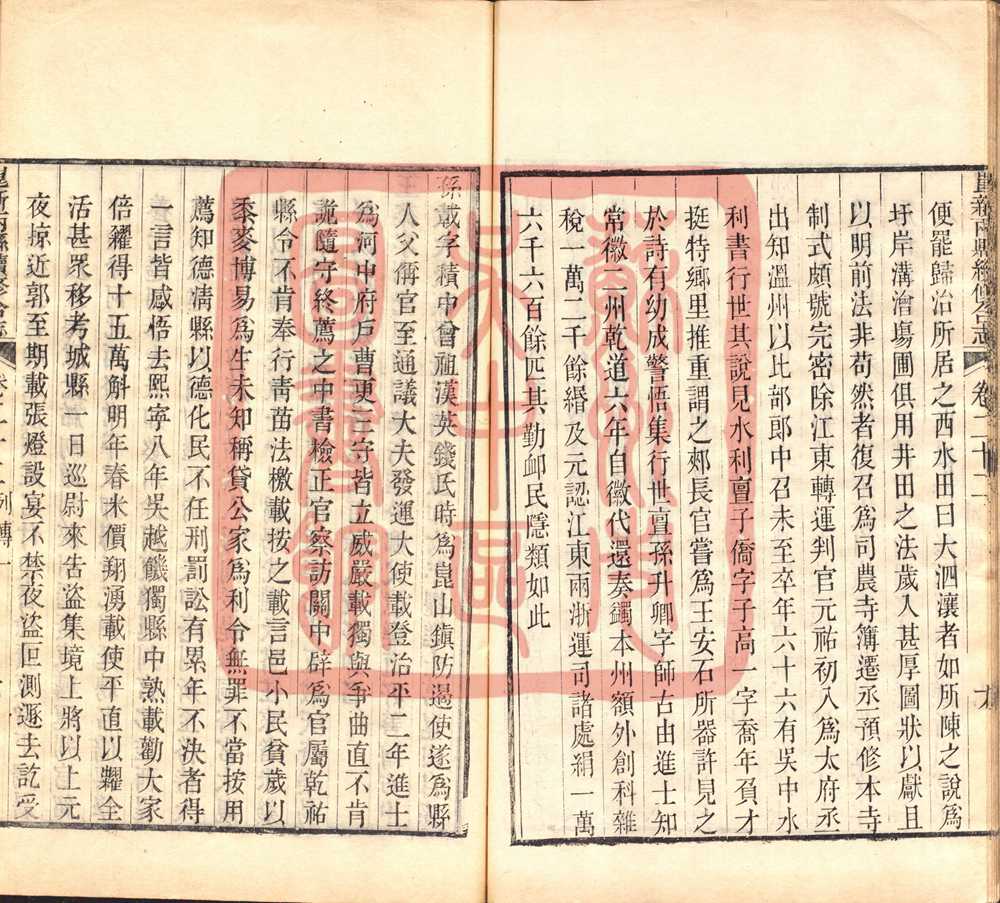 崑新兩縣續修合志 卷二十二
便罷歸治所居之西水田曰大泗瀼者如所陳之說爲
圩岸溝澮塲圃俱用井田之法歲入甚厚圖狀以獻且
以明前法非苟然者復召爲司農寺簿遷丞預修本寺
制式頗號完密除江東轉運判官元祐初入爲太府丞
出知溫州以比部郎中召未至卒年六十六有吳中水
利書行世其說見水利亶子僑字子高一字喬年負才
挺特鄉里推重謂之郟長官嘗爲王安石所器許見之
於詩有幼成警悟集行世亶孫升卿字師古由進士知
常徽二州乾道六年自徽代還奏蠲本州額外創科雜
稅一萬二千餘緡及元認江東兩浙運司諸處絹一萬
六千六百餘匹其勤卹民隱類如此
孫載字積中曾祖漢英錢氏時爲崑山鎮防遏使遂爲縣
人父傳官至通議大夫發運大使載登治平二年進士
爲河中府戶曹更三守皆立威嚴載獨與爭曲直不肯
詭隨守終薦之中書檢正官察訪關中辟爲官屬乾祐
縣令不肯奉行靑苗法檄載按之載言邑小民貧歲以
黍麥博易爲生未知稱貸公家爲利令無罪不當按用
薦知德淸縣以德化民不任刑罰訟有累年不決者得
一言皆感悟去熙寧八年吳越饑獨縣中熟載勸大家
倍糴得十五萬斛明年春米價翔湧載使平直以糶全
活甚眾移考城縣一日巡尉來告盜集境上將以上元
夜掠近郭至期載張燈設宴不禁夜盜叵測遂去訖受
崑新兩縣續修合志 卷二十二 列傳一